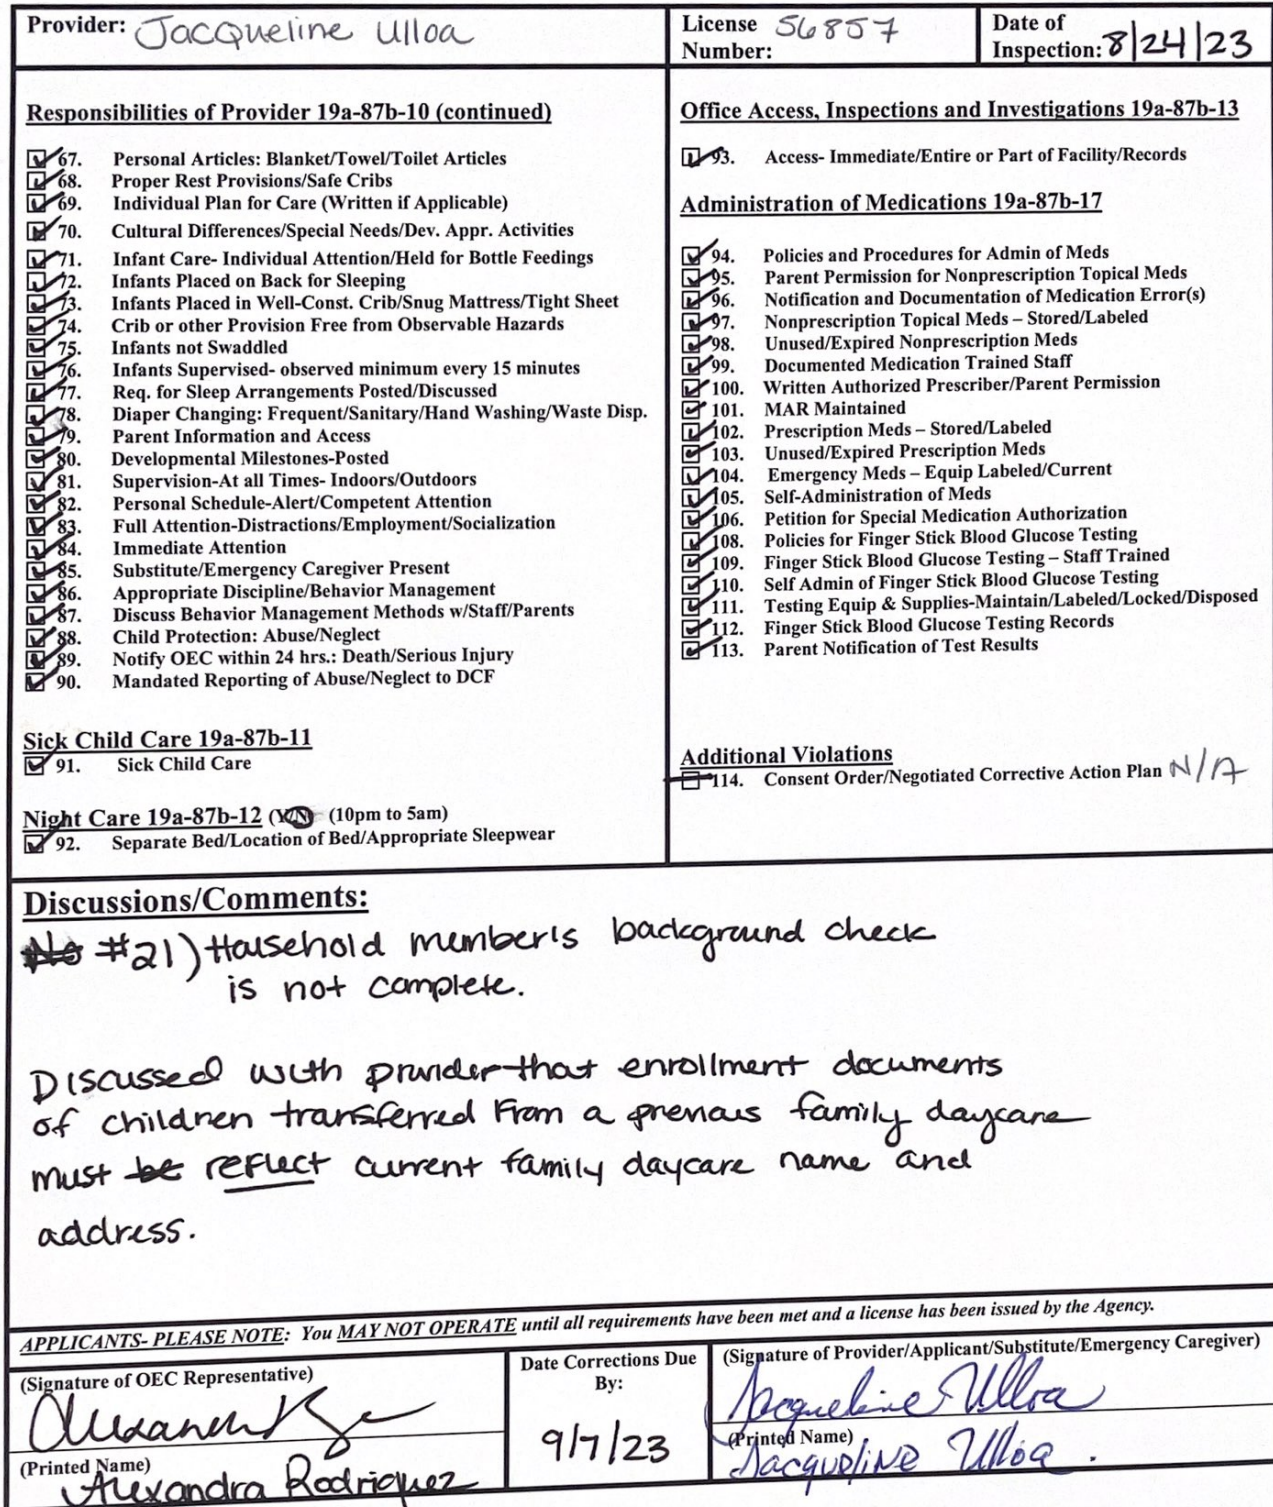 Provider: Jacqueline Ulloa
License Number: 56857
Date of Inspection: 8/24/23
Responsibilities of Provider 19a-87b-10 (continued)
67. Personal Articles: Blanket/Towel/Toilet Articles
68. Proper Rest Provisions/Safe Cribs
69. Individual Plan for Care (Written if Applicable)
70. Cultural Differences/Special Needs/Dev. Appr. Activities
71. Infant Care- Individual Attention/Held for Bottle Feedings
72. Infants Placed on Back for Sleeping
73. Infants Placed in Well-Const. Crib/Snug Mattress/Tight Sheet
74. Crib or other Provision Free from Observable Hazards
75. Infants not Swaddled
76. Infants Supervised- observed minimum every 15 minutes
77. Req. for Sleep Arrangements Posted/Discussed
78. Diaper Changing: Frequent/Sanitary/Hand Washing/Waste Disp.
79. Parent Information and Access
80. Developmental Milestones-Posted
81. Supervision-At all Times- Indoors/Outdoors
82. Personal Schedule-Alert/Competent Attention
83. Full Attention-Distractions/Employment/Socialization
84. Immediate Attention
85. Substitute/Emergency Caregiver Present
86. Appropriate Discipline/Behavior Management
87. Discuss Behavior Management Methods w/Staff/Parents
88. Child Protection: Abuse/Neglect
89. Notify OEC within 24 hrs.: Death/Serious Injury
90. Mandated Reporting of Abuse/Neglect to DCF
Sick Child Care 19a-87b-11
91. Sick Child Care
Night Care 19a-87b-12 (Y/N) (10pm to 5am)
92. Separate Bed/Location of Bed/Appropriate Sleepwear
Office Access, Inspections and Investigations 19a-87b-13
93. Access- Immediate/Entire or Part of Facility/Records
Administration of Medications 19a-87b-17
94. Policies and Procedures for Admin of Meds
95. Parent Permission for Nonprescription Topical Meds
96. Notification and Documentation of Medication Error(s)
97. Nonprescription Topical Meds – Stored/Labeled
98. Unused/Expired Nonprescription Meds
99. Documented Medication Trained Staff
100. Written Authorized Prescriber/Parent Permission
101. MAR Maintained
102. Prescription Meds – Stored/Labeled
103. Unused/Expired Prescription Meds
104. Emergency Meds – Equip Labeled/Current
105. Self-Administration of Meds
106. Petition for Special Medication Authorization
108. Policies for Finger Stick Blood Glucose Testing
109. Finger Stick Blood Glucose Testing – Staff Trained
110. Self Admin of Finger Stick Blood Glucose Testing
111. Testing Equip & Supplies-Maintain/Labeled/Locked/Disposed
112. Finger Stick Blood Glucose Testing Records
113. Parent Notification of Test Results
Additional Violations
114. Consent Order/Negotiated Corrective Action Plan N/A
Discussions/Comments:
No #21) Household member's background check
is not complete.
Discussed with provider that enrollment documents
of children transferred From a previous family daycare
must be reflect current family daycare name and
address.
APPLICANTS- PLEASE NOTE: You MAY NOT OPERATE until all requirements have been met and a license has been issued by the Agency.
(Signature of OEC Representative)
(Printed Name)
Alexandra Rodriguez
Date Corrections Due
By:
9/7/23
(Signature of Provider/Applicant/Substitute/Emergency Caregiver)
Jacqueline Ulloa
(Printed Name)
Jacqueline Ulloa.